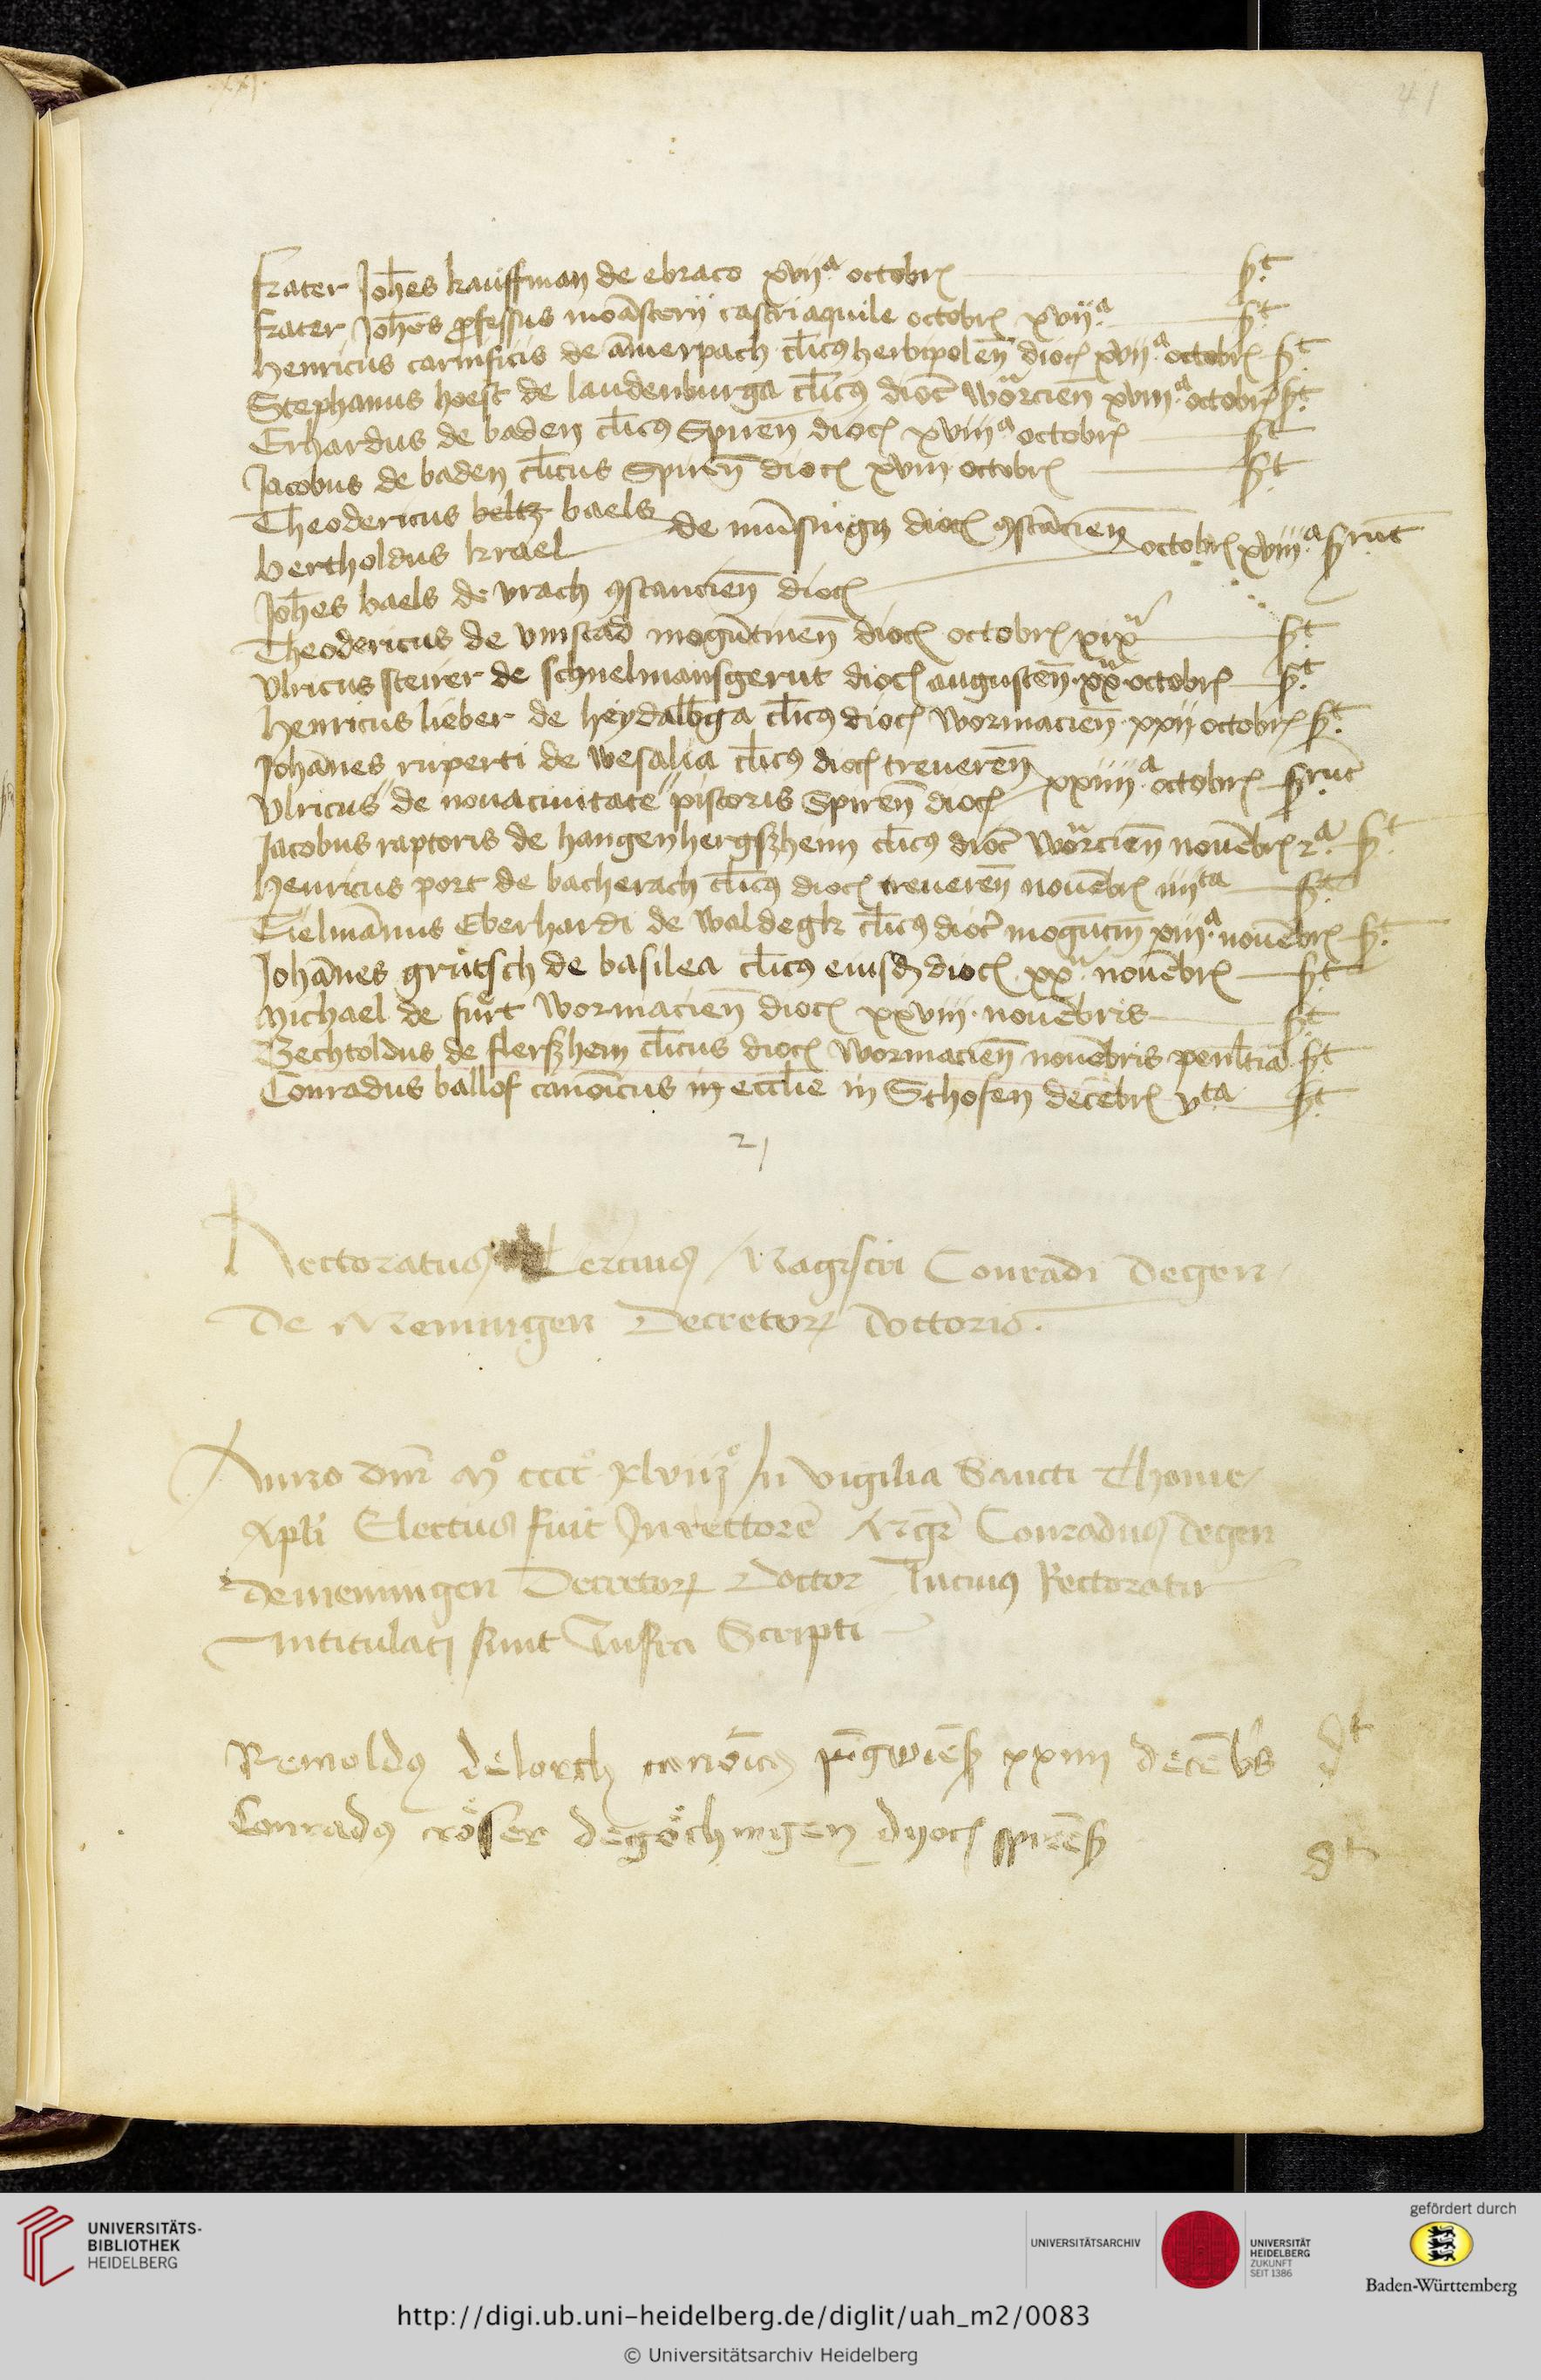 xxj
41
Frater Joh̄es kauffman de ebraco xvijª octobrꝭ dt
Frater Joh̄es ꝓfessus mōasterij castriaquile octobrꝭ xvijª dt
Henricus carnificis de āmerpach cl̄icꝰ herbipolen̄ diocꝭ xvijª octobrꝭ dt
Stephanus hoest de laudenburga cl̄icꝰ dioc̄ worᵃcien̄ xviijª octobrꝭ dt
Erhardus de baden cl̄icꝰ Spiren̄ diocꝭ xviijª octobrꝭ dt
Jacobus de baden cl̄icus Spiren̄ diocꝭ xviij octobrꝭ dt
Theodericus beltz baels
Bertholdus krael de mūsingen diocꝭ ꝯstācien̄ octobrꝭ xviijª drūt
Joh̄es baels de vrach ꝯstancien̄ diocꝭ
Theodericus de vmstad mogūtinen̄ diocꝭ octobrꝭ xixª dt
Vlricus steirer de schnelmansgerut diocꝭ augusten̄ xxª octobrꝭ dt
Henricus lieber de heydalb̄ga cl̄icꝰ diocꝭ wormacien̄ xxij octobrꝭ dt
Johānes ruperti de wesalia cl̄icꝰ diocꝭ treueren̄
Vlricus " de nouaciuitate " pistoris Spiren̄ diocꝭ xxiiijª octobrꝭ drūt
Jacobus raptoris de hangenhergszheim cl̄icꝰ dioc̄ worᵃcien̄ nouēbrꝭ 2ª dt
Henricus port de bacherach cl̄icꝰ diocꝭ treueren̄ nouēbrꝭ iiijta dt
Tielmānus Eberhardi de waldegk cl̄icꝰ dioc̄ mogūtin̄ xiijª nouēbrꝭ dt
Johānes grütsch de basilea cl̄icꝰ eiusdꝫ diocꝭ xxª nouēbrꝭ dt
Michael de furt wormacien̄ diocꝭ xxviij nouēbris dt
Bechtoldus de flerszhem cl̄icus diocꝭ wormacien̄ nouēbris penl̄tia dt
Conradus ballof canōicus in eccl̄ie in Sthofen decēbrꝭ vta dt
21
Rectoratus Tercius Magistri Conradi Degen
De Memingen Decretorꝝ doctoris.
Anno dn̄i mº ccccº xlviijº Jn vigilia Sancti Thome
Apl̄i Electus fuit Jn rectorē Mgr̄ Conradus degen
de memingen Decretorꝝ Doctor Cuius Rectoratu
intitulati sunt Infra Scripti
Reinoldꝰ de lorch canōicꝰ pīgwiēsꝭ xxiiij decēbr̄s dt
Conradꝰ röser de göchingen dyocꝭ spirēsꝭ dt
UNIVERSITÄTS-
BIBLIOTHEK
HEIDELBERG
UNIVERSITÄTSARCHIV
UNIVERSITÄT
HEIDELBERG
ZUKUNFT
SEIT 1386
gefördert durch
Baden-Württemberg
http://digi.ub.uni-heidelberg.de/diglit/uah_m2/0083
© Universitätsarchiv Heidelberg